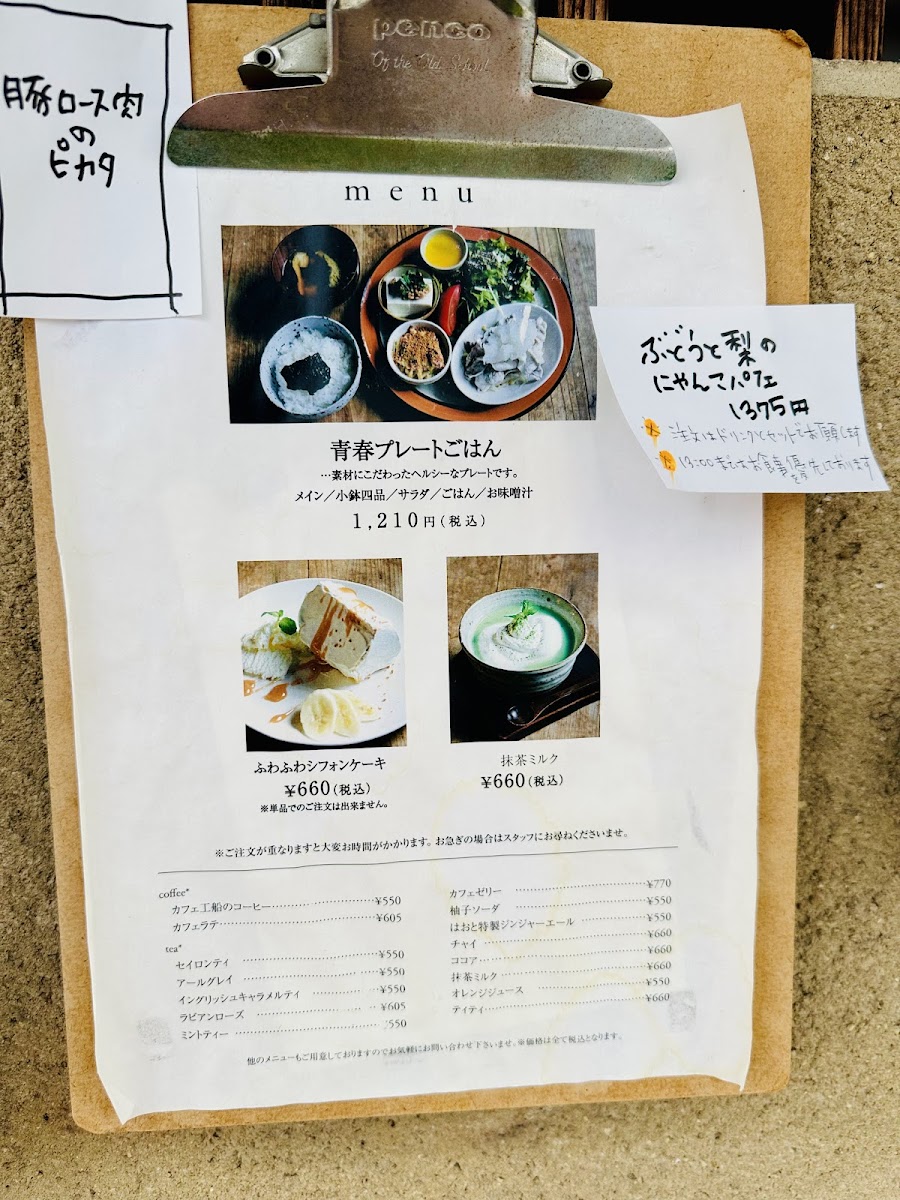 penco
Of the Old School
豚ロース肉
の
ピカタ
menu
ぶどうと梨の
にゃんこパフェ
1375円
注文はドリンクとセットでお願いします
13:00まではお食事優先しております
青春プレートごはん
…素材にこだわったヘルシーなプレートです。
メイン／小鉢四品／サラダ／ごはん／お味噌汁
1,210円（税込）
ふわふわシフォンケーキ
¥660（税込）
※単品でのご注文は出来ません。
抹茶ミルク
¥660（税込）
※ご注文が重なりますと大変お時間がかかります。お急ぎの場合はスタッフにお尋ねくださいませ。
coffee*
カフェ工船のコーヒー ¥550
カフェラテ ¥605
tea*
セイロンティ ¥550
アールグレイ ¥550
イングリッシュキャラメルティ ¥550
ラビアンローズ ¥605
ミントティー ¥550
カフェゼリー ¥770
柚子ソーダ ¥550
はおと特製ジンジャーエール ¥550
チャイ ¥660
ココア ¥660
抹茶ミルク ¥660
オレンジジュース ¥550
ティティ ¥660
他のメニューもご用意しておりますのでお気軽にお問い合わせ下さいませ。※価格は全て税込となります。